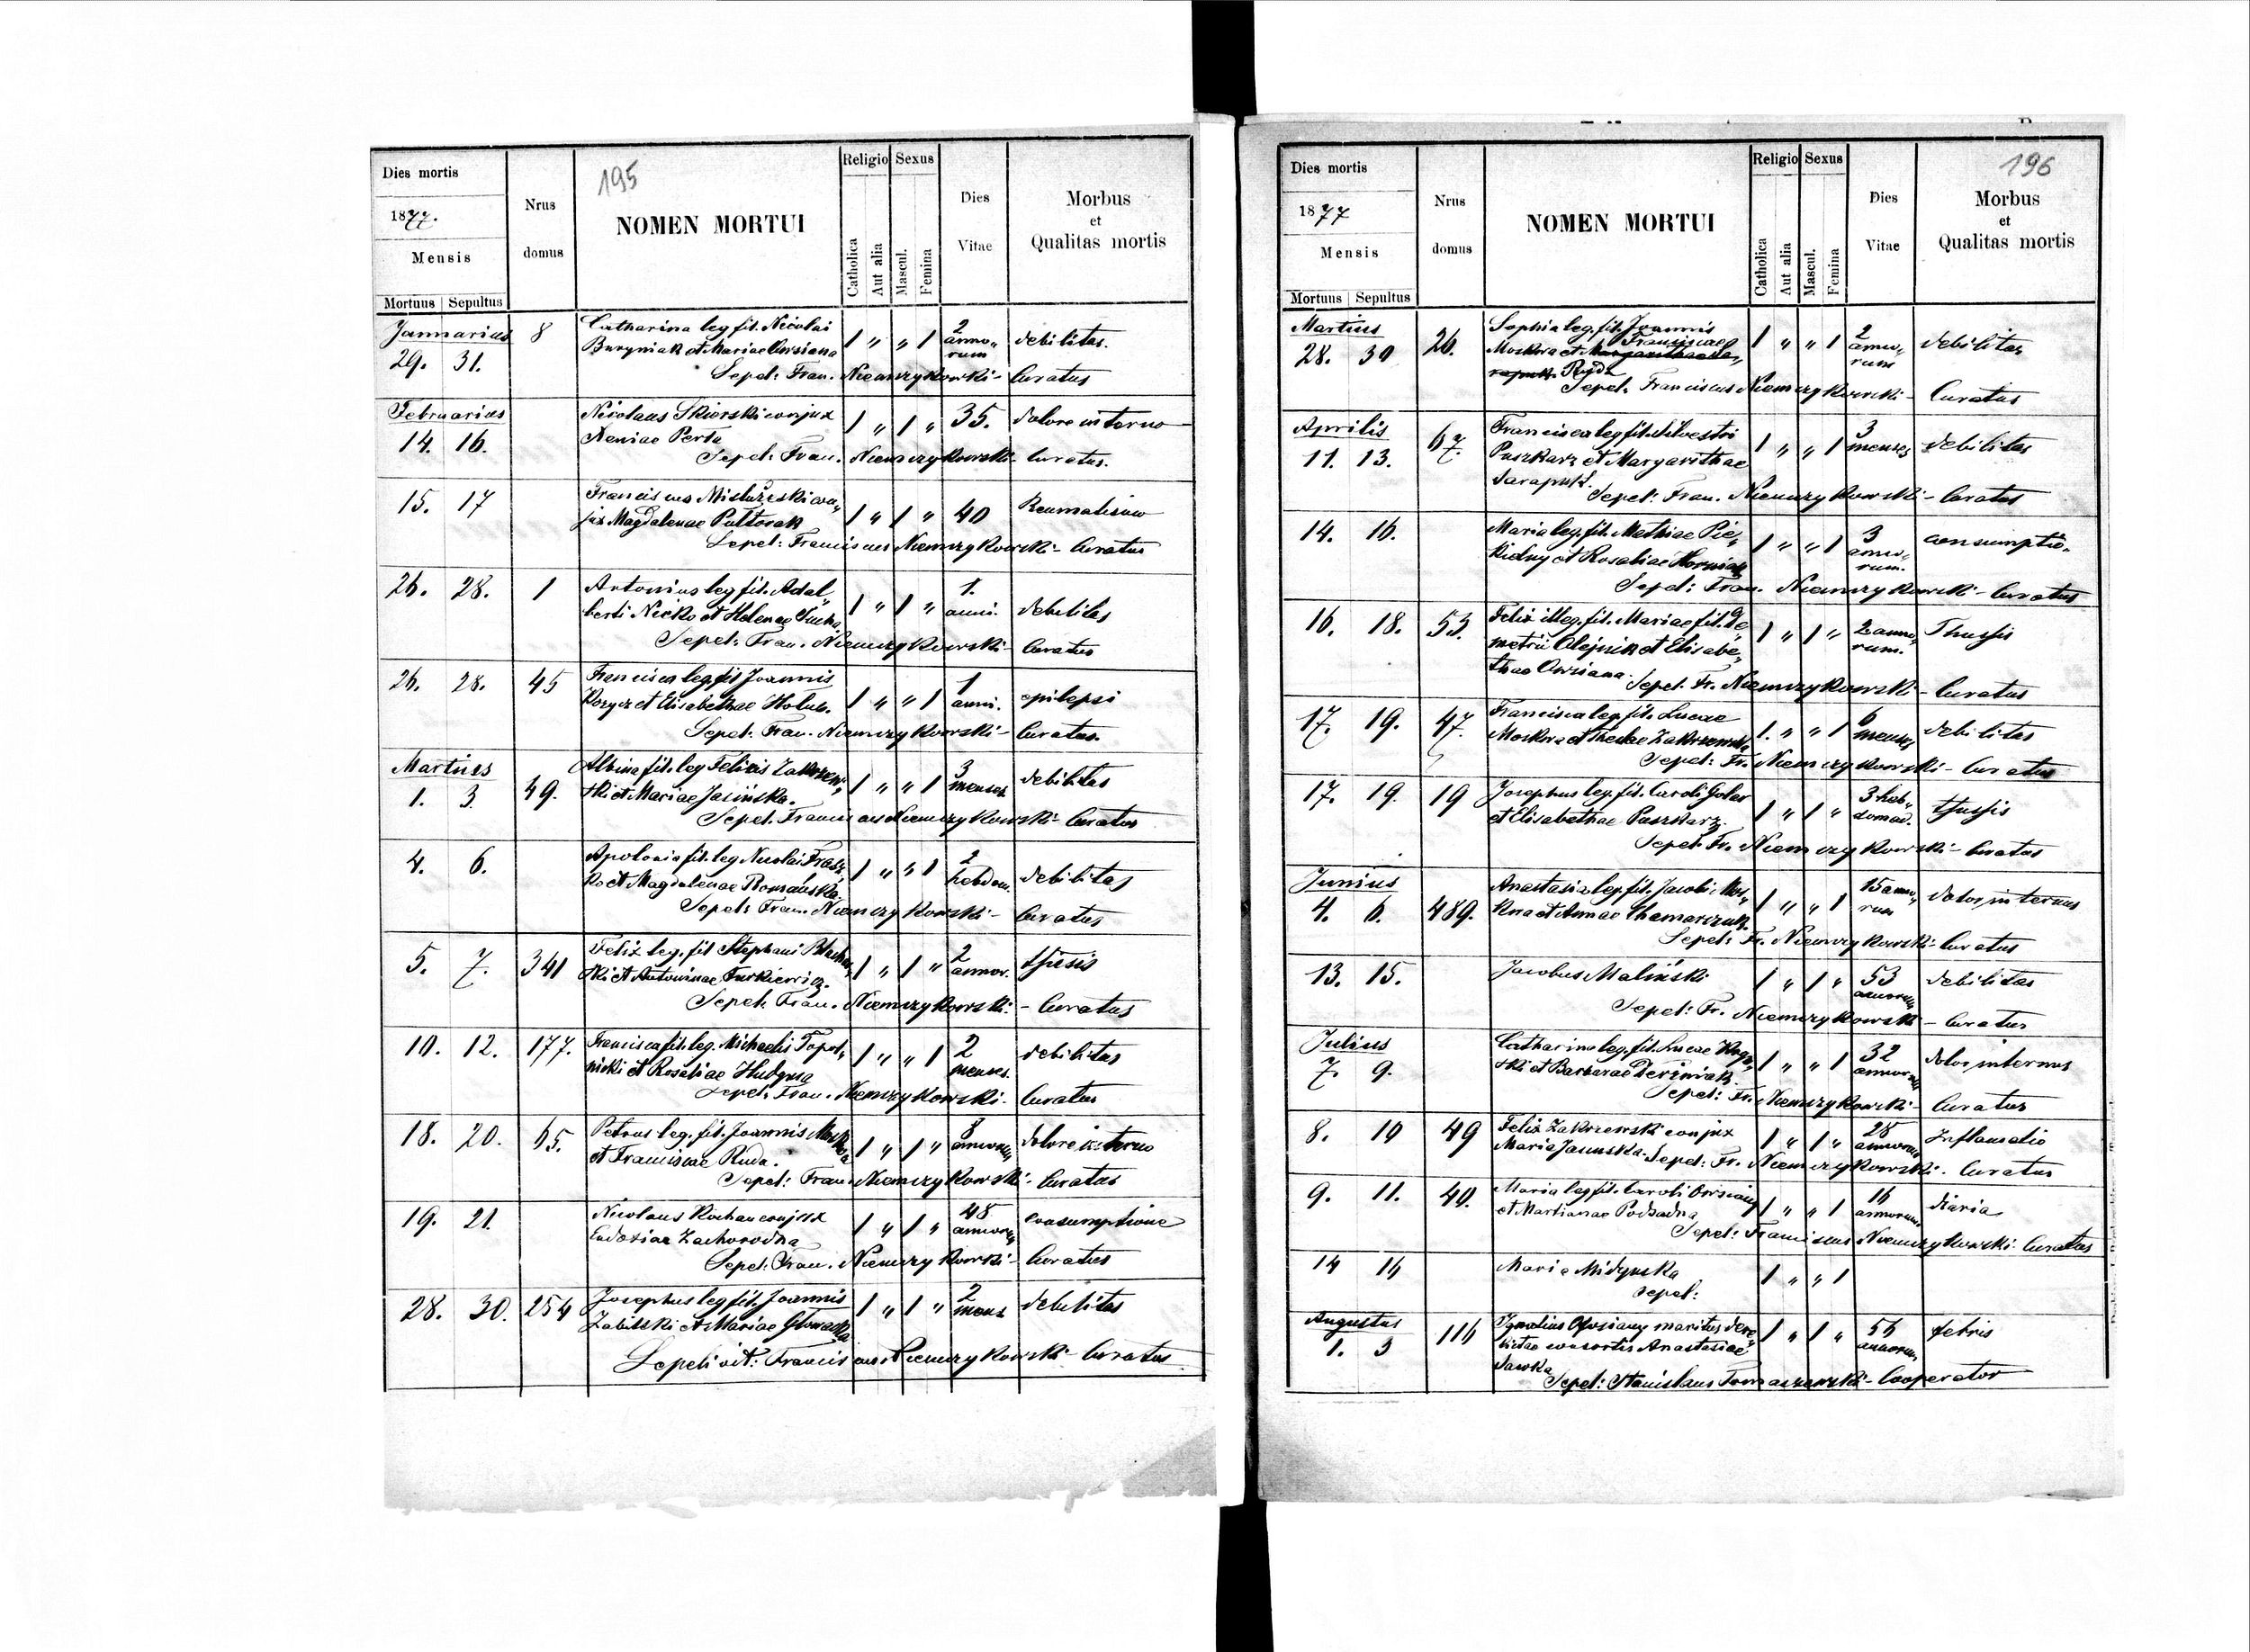 195
Dies mortis
1877.
Mensis
Mortuus Sepultus
Nrus domus
NOMEN MORTUI
Religio Sexus
Catholica Aut alia Mascul. Femina
Dies Vitae
Morbus
et
Qualitas mortis
Januarius 8 Catharina leg. fil. Nicolai 2
29. 31. Buryniak et Mariae Owsiana 1 " " 1 anno„rum debilitas.
Sepel: Fran. Niemczykowski - Curatus
Februarius Nicolaus Skierski conjux
14. 16. Xeniae Perta 1 " 1 " 35. dolore interno
Sepel: Fran. Niemczykowski - Curatus.
15. 17 Franciscus con„
jux Magdalenae Pułtorak 1 " 1 " 40 Reumatismo
Sepel: Franciscus Niemczykowski - Curatus
26. 28. 1 Antonius leg fil. Adal„ 1.
berti Nicko et Helenae 1 " 1 " anni. debilitas
Sepel: Fran. Niemczykowski - Curatus
26. 28. 45 Francisca leg. fil Joannis 1
Korycz et Elisabethae Hołub. 1 " " 1 anni. epilepsi
Sepel: Fran. Niemczykowski - Curatus.
Martius Albina fil. leg Felicis Zakrzew„ 3
1. 3. 49. ski et Mariae Jasińska. 1 " " 1 menses debilitas
Sepel. Franciscus Niemczykowski - Curatus
4. 6. Apolonia fil. leg Nicolai 2
ko et Magdalenae Romańska. 1 " " 1 hebdom. debilitas
Sepel: Fran. Niemczykowski - Curatus
5. 7. 341 Felix leg. fil Stephani 2
ski et Antoninae Turkiewicz. 1 " 1 " annor. tussis
Sepel. Fran. Niemczykowski - Curatus
10. 12. 177. Francisca fil. leg. Michaelis Topol„ 2
nicki et Rosaliae Hudyma 1 " " 1 menses. debilitas
Sepel. Fran. Niemczykowski - Curatus
18. 20. 65. Petrus leg. fil. Joannis Moskwa 8
et Franciscae Ruda. 1 " 1 " annorum dolore interno
Sepel: Fran. Niemczykowski - Curatus
19. 21. Nicolaus Kochan conjux 48
Eudoxiae Zachorodna 1 " 1 " annorum consumptione
Sepel. Fran. Niemczykowski - Curatus
28. 30. 254 Josephus leg fil. Joannis 2
Zabilski et Mariae Głowacka 1 " 1 " mens debilitas
Sepelivit: Franciscus Niemczykowski - Curatus
196
Dies mortis
1877
Mensis
Mortuus Sepultus
Nrus domus
NOMEN MORTUI
Religio Sexus
Catholica Aut alia Mascul. Femina
Dies Vitae
Morbus
et
Qualitas mortis
Martius Sophia leg. fil. Joannis
28. 30 26. Moskwa et Franciscae 1 " " 1 2 anno„rum debilitas
Ryda
Sepel. Franciscus Niemczykowski - Curatus
Aprilis Francisca leg fil. Silvestri 3
11. 13. 67. Puszkarz et Margarithae 1 " " 1 menses debilitas
Sarapuk.
Sepel: Fran. Niemczykowski - Curatus
14. 16. Maria leg. fil. Mathiae Pie„ 3
kielny et Rosaliae 1 " " 1 anno„rum. consumptio.
Sepel: Fran. Niemczykowski - Curatus
16. 18. 53. Felix illeg. fil. Mariae fil. De„
metrii Olejnik et Elisabe„ 1 " 1 " 2 anno„rum. Thussis
thae Owsiana. Sepel. Fr. Niemczykowski - Curatus
17. 19. 47. Francisca leg. fil. Lucae 6
Moskwa et Theclae Zakrzewska 1. " " 1 menses debilitas
Sepel: Fr. Niemczykowski - Curatus
17. 19. 19 Josephus leg. fil. Caroli Goler 3 heb„
et Elisabethae Puszkarz. 1 " 1 " domad. tussis
Sepel: Fr. Niemczykowski - Curatus
Junius Anastasia leg. fil. Jacobi Mos„ 15 anno„
4. 6. 489. kwa et Annae Chamarczuk. 1 " " 1 rum dolor internus
Sepel: Fr. Niemczykowski - Curatus
13. 15. Jacobus Maliński 1 " 1 " 53 annorum debilitas
Sepel: Fr. Niemczykowski - Curatus
Julius Catharina leg. fil. Lucae 32
7. 9. ski et Barbarae 1 " " 1 annorum dolor internus
Sepel: Fr. Niemczykowski - Curatus
8. 10 49 Felix Zakrzewski conjux 1 " 1 " 28 annorum Inflamatio
Maria Jasinska. Sepel: Fr. Niemczykowski. Curatus
9. 11. 40. Maria leg fil. Caroli Owsiany 16
et Marianae Podsadna 1 " " 1 annorum diaria
Sepel: Franciscus Niemczykowski - Curatus
14 16 Maria Midynska 1 " " 1
Sepel:
Augustus Ignatius Owsiany maritus dere„
1. 3 116 lictae consortis Anastasiae 1 " 1 " 56 annorum febris
Sawka
Sepel: Stanislaus Tomaszewski - Cooperator